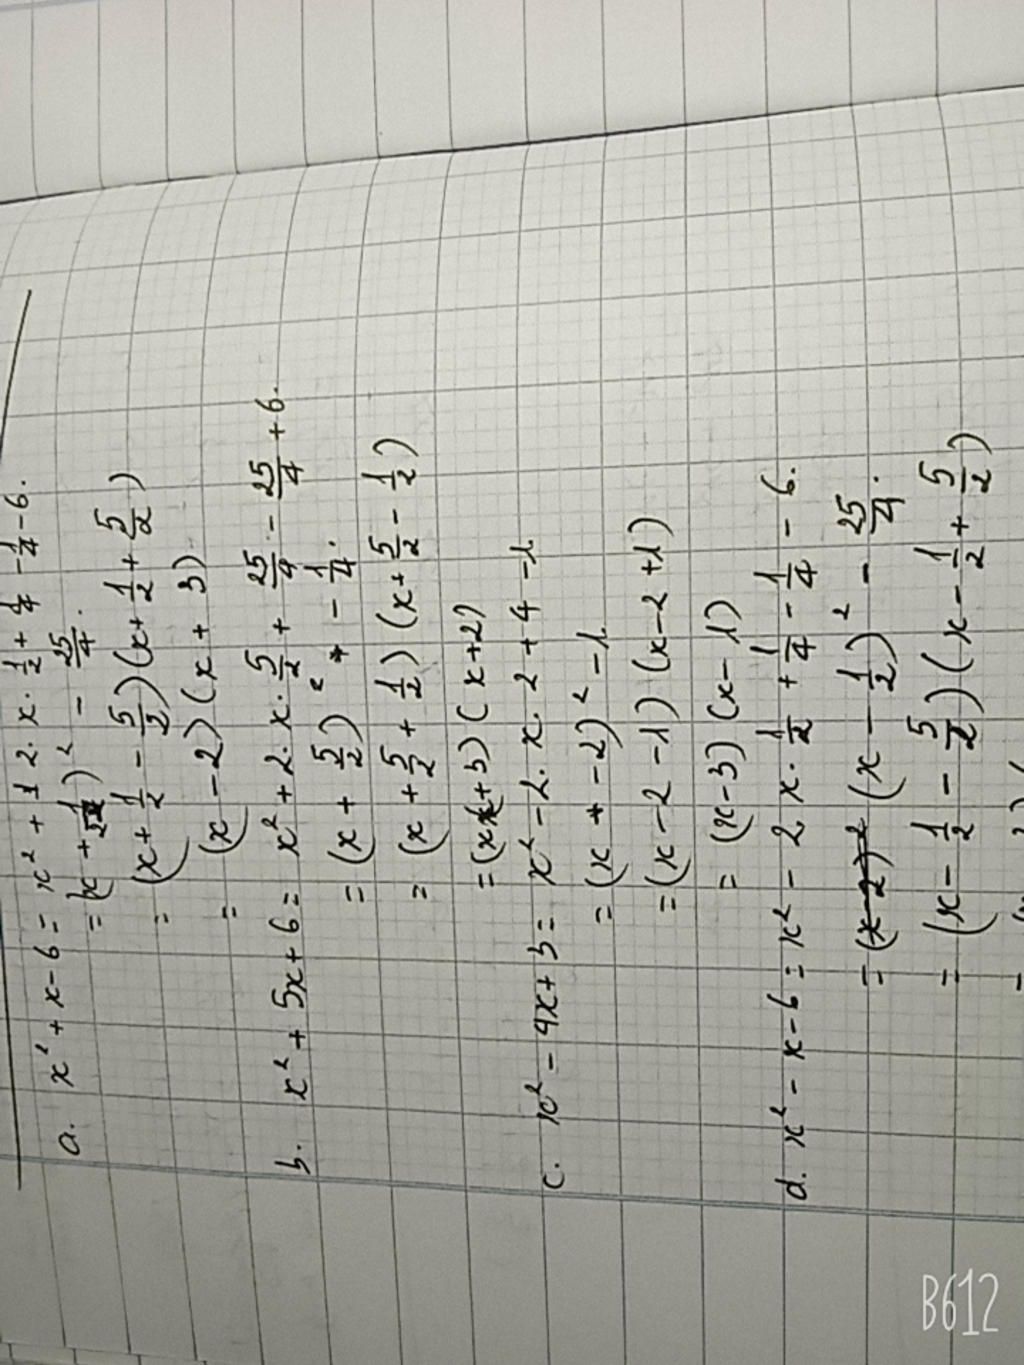 a. x² + x - 6 = x² + 2. x. 1/2 + 1/4 - 1/4 - 6.
= (x + 1/2)² - 25/4.
= (x + 1/2 - 5/2)(x + 1/2 + 5/2)
= (x - 2)(x + 3)
b. x² + 5x + 6 = x² + 2. x. 5/2 + 25/4 - 25/4 + 6.
= (x + 5/2)² - 1/4.
= (x + 5/2 + 1/2)(x + 5/2 - 1/2)
= (x + 3)(x + 2)
c. x² - 4x + 3 = x² - 2. x. 2 + 4 - 1
= (x - 2)² - 1.
= (x - 2 - 1)(x - 2 + 1)
= (x - 3)(x - 1)
d. x² - x - 6 = x² - 2 x. 1/2 + 1/4 - 1/4 - 6.
= (x - 1/2)² - 25/4.
= (x - 1/2 - 5/2)(x - 1/2 + 5/2)
=
B612